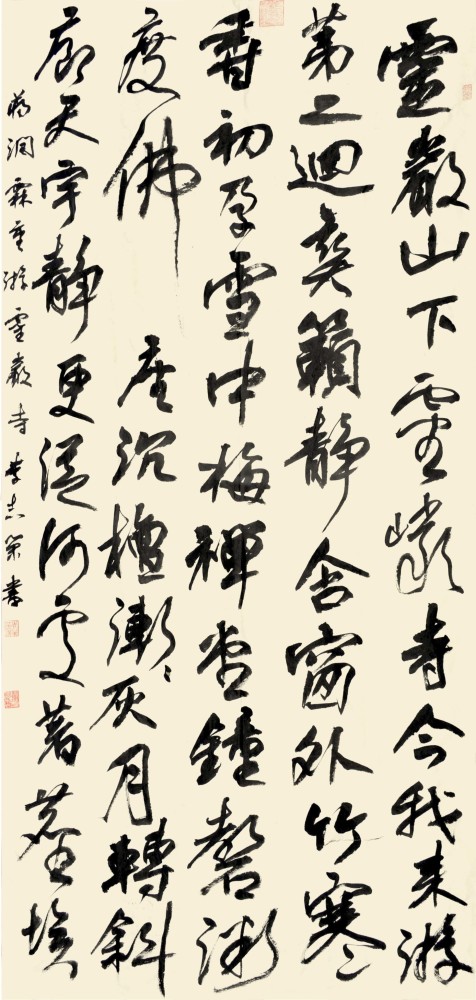 靈巖山下靈巖寺今我來游
第二迴爽籟靜含窗外竹寒
香初孕雪中梅禪堂鐘磬微々
度佛座沉檀漸々灰月轉斜
廊天宇靜更從何處著塵埃
蔣潤霖重游靈巖寺李志策書